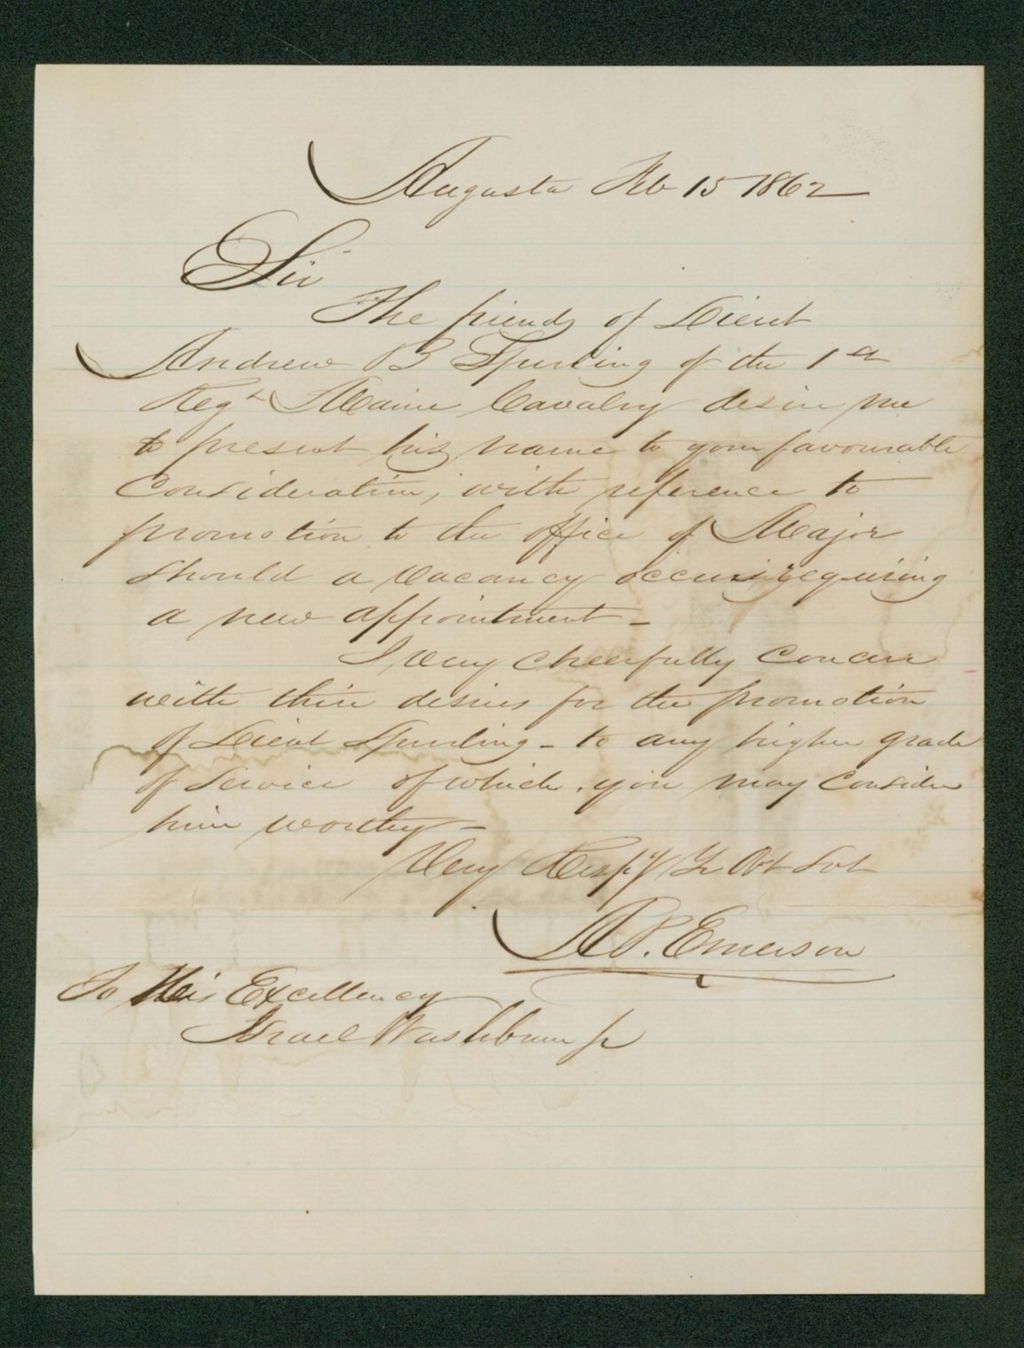 Augusta Feb 15 1862
Sir
The friends of Lieut
Andrew B Spurling of the 1st
Regt Maine Cavalry desire me
to present his name to your favourable
Consideration, with reference to
promotion to the office of Major
should a vacancy occur requiring
a new appointment -
I very cheerfully concur
with their desires for the promotion
of Lieut Spurling - to any higher grade
of service of which you may consider
him worthy -
Very Resply Yr Obt Svt
P. Emerson
To His Excellency
Israel Washburn Jr